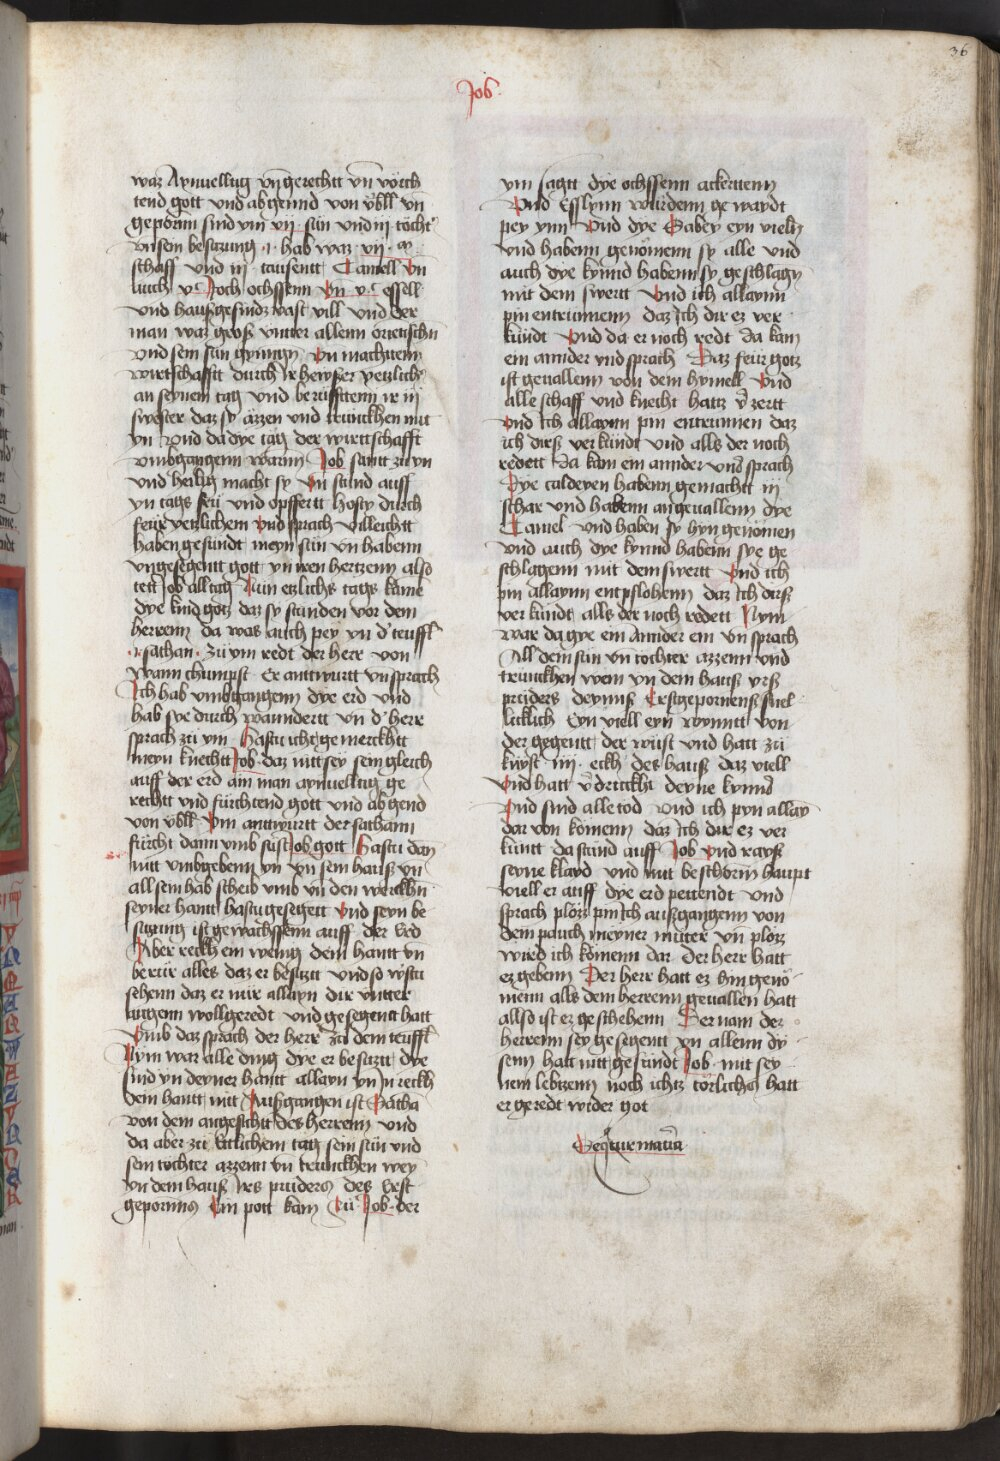 36
Job
waz Aynuelltig vn̄ gerechtt vn̄ vörch
tend gott vnd abgennd von v̈bll vn̄
geporīn sind ym vij sün vnd iij töcht'
vn̄ sein besitzung .i. hab waz vij m
schaff vnd iij tausentt Camell Vn̄
auch vc Joch ochssenn Vn̄ vc essell
vnd haußgesindz vast vill vnd der
man waz groß vntter allenn orietischn̄
vnd sein sün gyngn̄ Vn̄ machttenn
wirtschafftt durch ir hewßer yetzlich'
an seynem tag vnd berüfftenn ir iij
swester daz sy äzzen vnd trünckhen mit
yn Vnd da dye täg der wirttschafft
vmbgangenn warnn Job santt zu yn
vnd heilig macht sy Vn̄ stund auff
yn tags frü vnd opffertt hosty durch
ir yetzlichem vnd sprach villeichtt
haben gesündt meyn sün vn̄ habenn
vngesegentt gott yn iren hertzenn also
tett Job all tag Nün etzlichs tags kame
dye kind gotz daz sy stünden vor dem
herrenn da was auch pey yn d' teuffl
.i. sathan. zü ym redt der herr von
wann chumpst Er antwurtt vn̄ sprach
Ich hab vmbgangenn dye erd vnd
hab sye durch wanndertt vn̄ d' herr
sprach zü ym Hastu icht gemerckhtt
meyn knechtt Job daz nitt sey sein gleich
auff der erd ain man aynuelltig ge
rechtt vnd fürchtend gott vnd abgend
von v̈bll Ym antwurtt der sathann
fürcht dann vmb süst Job gott Hastu dan
nit vmbgebenn yn vn̄ sein hauß vn̄
all sein hab scheib vmb vn̄ den werckhn̄
seyner hantt hastu gesegett Vnd seyn be
sitzung ist gewachssenn auff der Erd
Aber reckh ein wenig dein hantt vn̄
berür alles daz er besitzt vnd so wstu
sehenn daz er nür allayn dir vntter
augenn wollgeredt vnd gesegent hatt
Vmb daz sprach der herr zü dem teuffl
Nym war alle ding dye er besitzt dye
sind yn deyner hantt allayn yn In reckh
dein hantt nitt Außgangen ist Satha
von dem angesichtt des herrenn vnd
da aber zü ettlichem täg sein sün vnd
sein töchter äzzenn vn̄ trünckhen wey
yn dem hauß irs prüders des Erst
gepornns Ein pott kam zü Job der
ym sagtt dye ochssenn ackerttenn
Vnd Esslynn würdenn gewaydt
pey ynn Vnd dye Sabey eyn vieln
vnd habenn genömenn sy alle vnd
auch dye kynnd habenn sy geschlagn̄
mit dem swertt Vnd ich allaynn
pin entrünnenn daz Ich dir ez ver
kündt Vnd da er noch redt da kam
ein annder vnd sprach Daz feür gotz
ist geuallenn von dem hymell Vnd
alle schaff vnd knecht hattz v̄zertt
Vnd Ich allaynn pin entrünnen daz
ich dirß verkündt vnd alls der noch
redett da kam ein annder vnd sprach
Dye caldeyen habenn gemachtt iij
schar vnd habenn angeuallenn dye
Camel vnd haben sy hyn genömen
vnd auch dye kynnd habenn sye ge
schlagenn mit dem swertt Vnd ich
pin allaynn entpflohenn daz Ich dirß
verkündt alls der noch redett Nym
war da gye ein Annder ein vn̄ sprach
All dein sün vn̄ töchter äzzenn vnd
trünckhen wein yn dem hauß yrß
prüders deynnß Erstgepornenß snel
licklich Eyn viell eyn wynntt von
der gegentt der wüst vnd hatt zü
knyst iiij eckh des hauß daz viell
Vnd hatt v̄drückht deyne kynnd
Vnd sind alle tod Vnd ich pyn allay
dar von kömenn daz Ich dir ez ver
künt da stünd auff Job Vnd rayß
seyne klayd vnd mit beschorīn haupt
viell er auff dye erd pettendt vnd
sprach plözz pin Ich außgangenn von
dem pauch meyner mütter vn̄ plözz
wird ich kömenn dar der herr hatt
ez gebenn Der herr hatt ez hin genö
menn alls dem herrenn geuallen hatt
allso ist ez geschehenn Der nam der
herrenn sey gesegentt yn allenn dy
senn hatt nitt gesündt Job mit sey
nem lebtzenn noch ichtz törlichs hatt
er geredt wider got